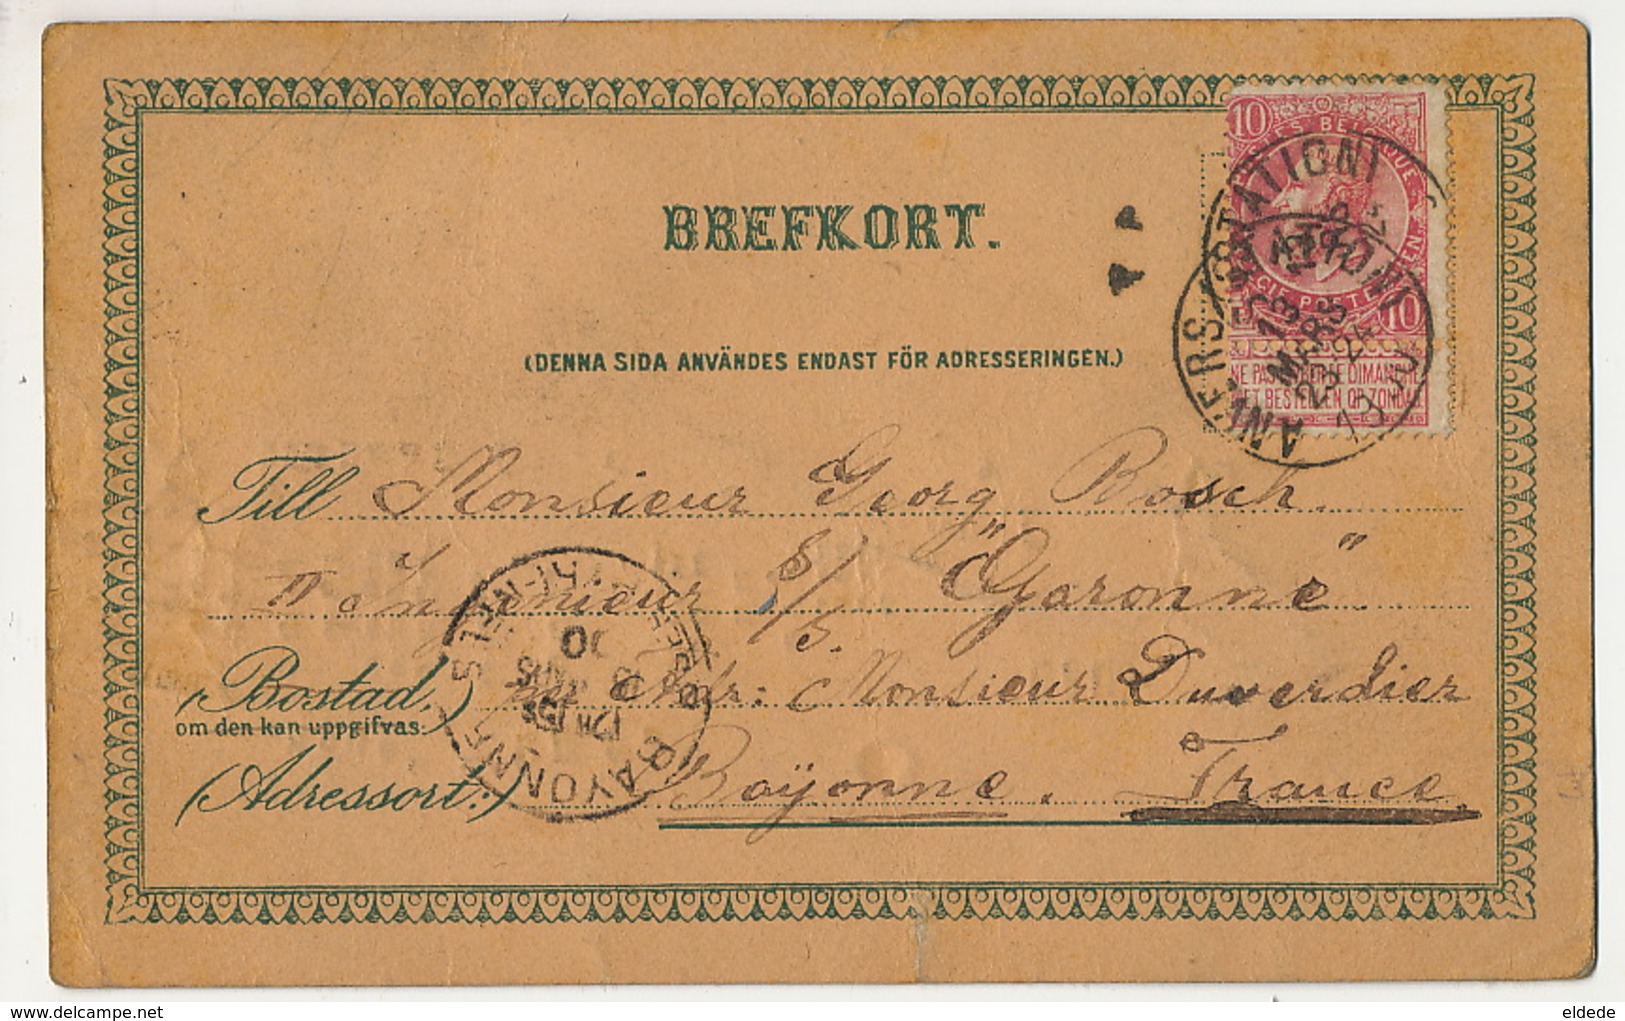 10
POSTES BELGIQUE
10
NE PAS LIVRER LE DIMANCHE
NIET BESTELLEN OP ZONDAG
ANVERS (STATION)
13
MARS
BREFKORT.
(DENNA SIDA ANVÄNDES ENDAST FÖR ADRESSERINGEN.)
Till Monsieur Georg Bosch.
II e Ingenieur S/S. "Garonne"
(Bostad,) Adr: Monsieur Duverdier
om den kan uppgifvas.
(Adressort:) Bayonne. France.
BAYONNE
eldede
delcampe.net